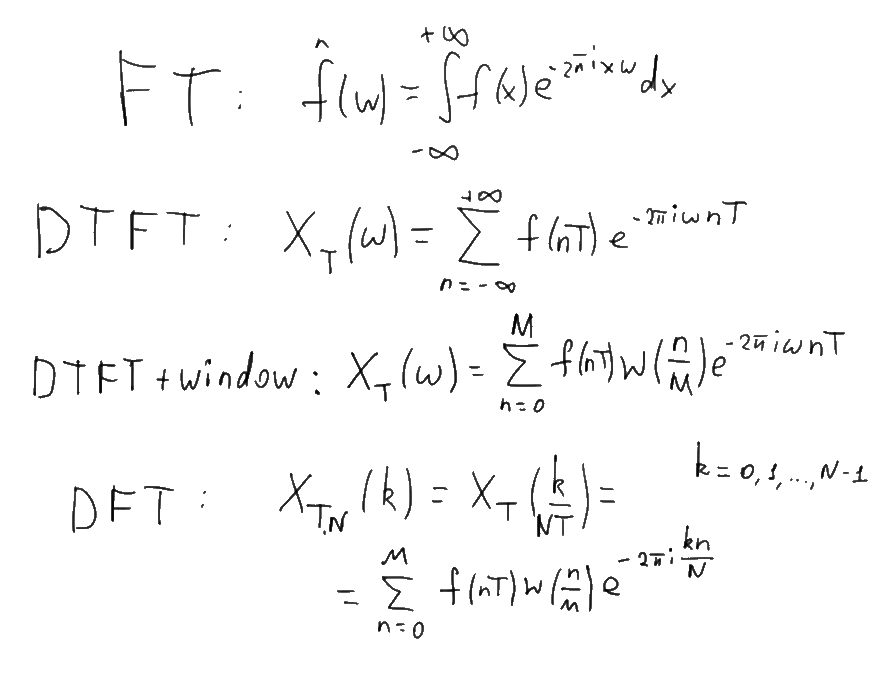 FT: f̂(w) = ∫_{-∞}^{+∞} f(x) e^{-2πixw} dx
DTFT: X_T(w) = Σ_{n=-∞}^{+∞} f(nT) e^{-2πiwnT}
DTFT + window: X_T(w) = Σ_{n=0}^{M} f(nT) W(n/M) e^{-2πiwnT}
DFT: X_{T,N}(k) = X_T(k/NT) = k = 0, 1, ..., N-1
= Σ_{n=0}^{M} f(nT) W(n/M) e^{-2πi kn/N}